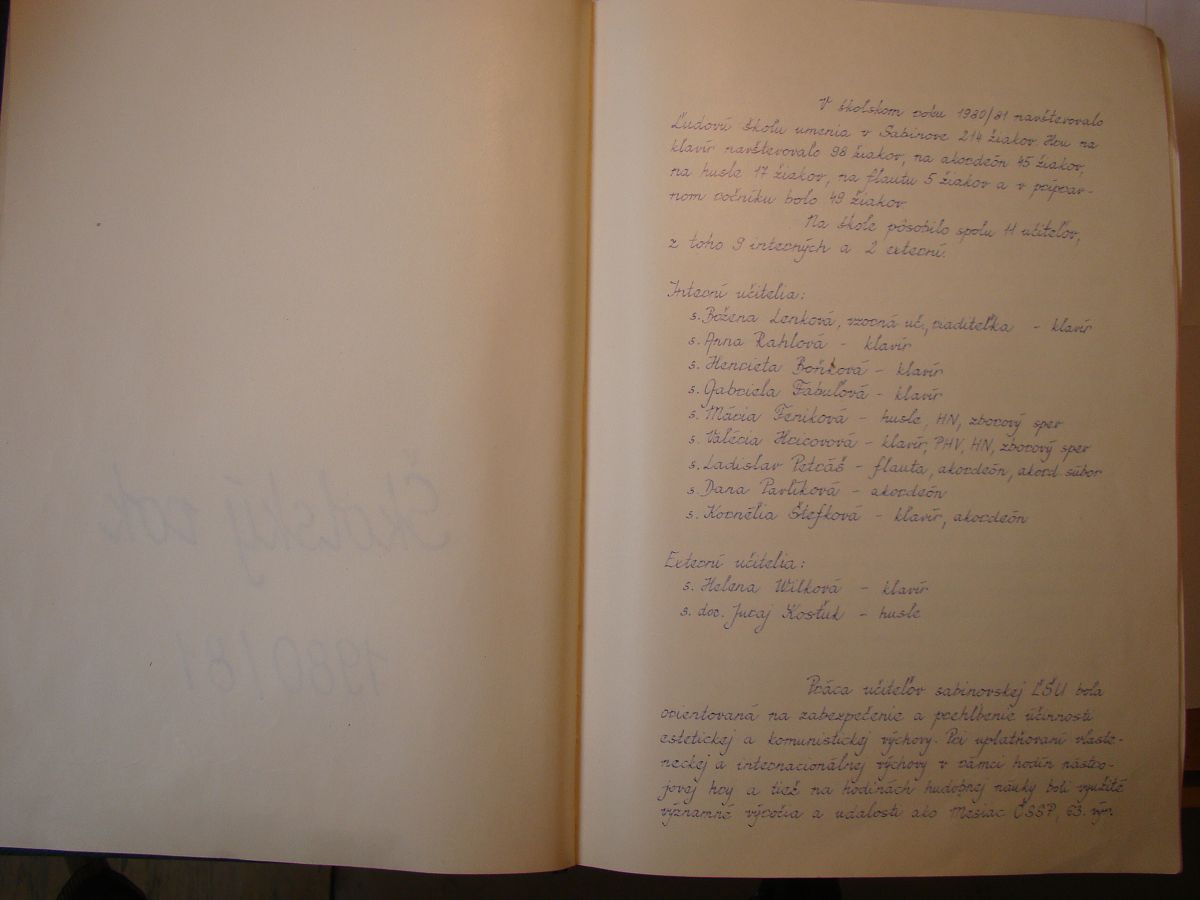 Školský rok
1980/81
V školskom roku 1980/81 navštevovalo
Ľudovú školu umenia v Sabinove 214 žiakov. Hru na
klavír navštevovalo 98 žiakov, na akordeón 45 žiakov,
na husle 17 žiakov, na flautu 5 žiakov a v príprav-
nom ročníku bolo 49 žiakov.
Na škole pôsobilo spolu 11 učiteľov,
z toho 9 interných a 2 externí.
Interní učitelia:
s. Božena Lenková, vzorná uč., riaditeľka - klavír
s. Anna Rahlová - klavír
s. Henrieta Boňková - klavír
s. Gabriela Fabuľová - klavír
s. Mária Feniková - husle, HN, zborový spev
s. Valéria Hricovová - klavír, PHV, HN, zborový spev
s. Ladislav Petráš - flauta, akordeón, akord. súbor
s. Dana Pavlíková - akordeón
s. Kornélia Štefková - klavír, akordeón
Externí učitelia:
s. Helena Wilková - klavír
s. doc. Juraj Kosťuk - husle
Práca učiteľov sabinovskej ĽŠU bola
orientovaná na zabezpečenie a prehĺbenie účinnosti
estetickej a komunistickej výchovy. Pri uplatňovaní vlaste-
neckej a internacionálnej výchovy v rámci hodín nástro-
jovej hry a tiež na hodinách hudobnej náuky boli využité
významné výročia a udalosti ako Mesiac ČSSP, 63. výr.